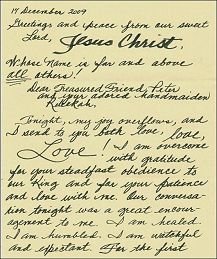 14 December 2009
Greetings and peace from our sweet
Lord, Jesus Christ.
Whose Name is far and above
all others!
Dear Treasured Friend, Peter
and your adored handmaiden
Rebekah.
Tonight, my joy overflows, and
I send to you both love, love,
Love! I am overcome
with gratitude
for your steadfast obedience to
our King and for your patience
and love with me. Our conversa-
tion tonight was a great encour-
agement to me. I am healed.
I am humbled. I am watchful
and expectant. For the first